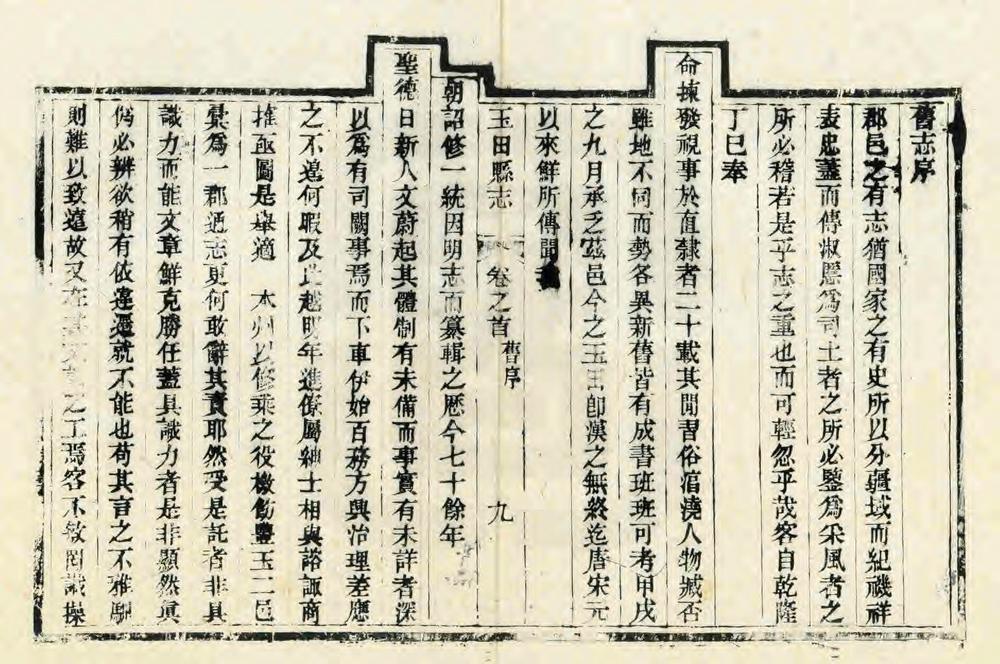 舊志序
郡邑之有志猶國家之有史所以分疆域而紀磯祥
表忠藎而傳淑慝為司土者之所必鑒為采風者之
所必稽若是乎志之重也而可輕忽乎哉客自乾隆
丁巳奉
命揀發視事於直隸者二十載其閒習俗淳澆人物臧否
雖地不同而勢各異新舊皆有成書班班可考甲戌
之九月承乏茲邑今之玉田卽漢之無終迄唐宋元
以來鮮所傳聞
玉田縣志 卷之首 舊序 九
朝詔修一統因明志而纂輯之歷今七十餘年
聖德日新人文蔚起其體制有未備而事實有未詳者深
以為有司闕事焉而下車伊始百務方興治理差應
之不遑何暇及此越明年進僚屬紳士相與諮諏商
搉亟圖是舉適 本州以修乘之役檄飭豐玉二邑
彙為一郡通志更何敢辭其責耶然受是託者非具
識力而能文章鮮克勝任蓋具識力者是非顯然眞
偽必辨欲稍有依違遷就不能也苟其言之不雅馴
則難以致遠故又在 之工焉客不敏罔識操